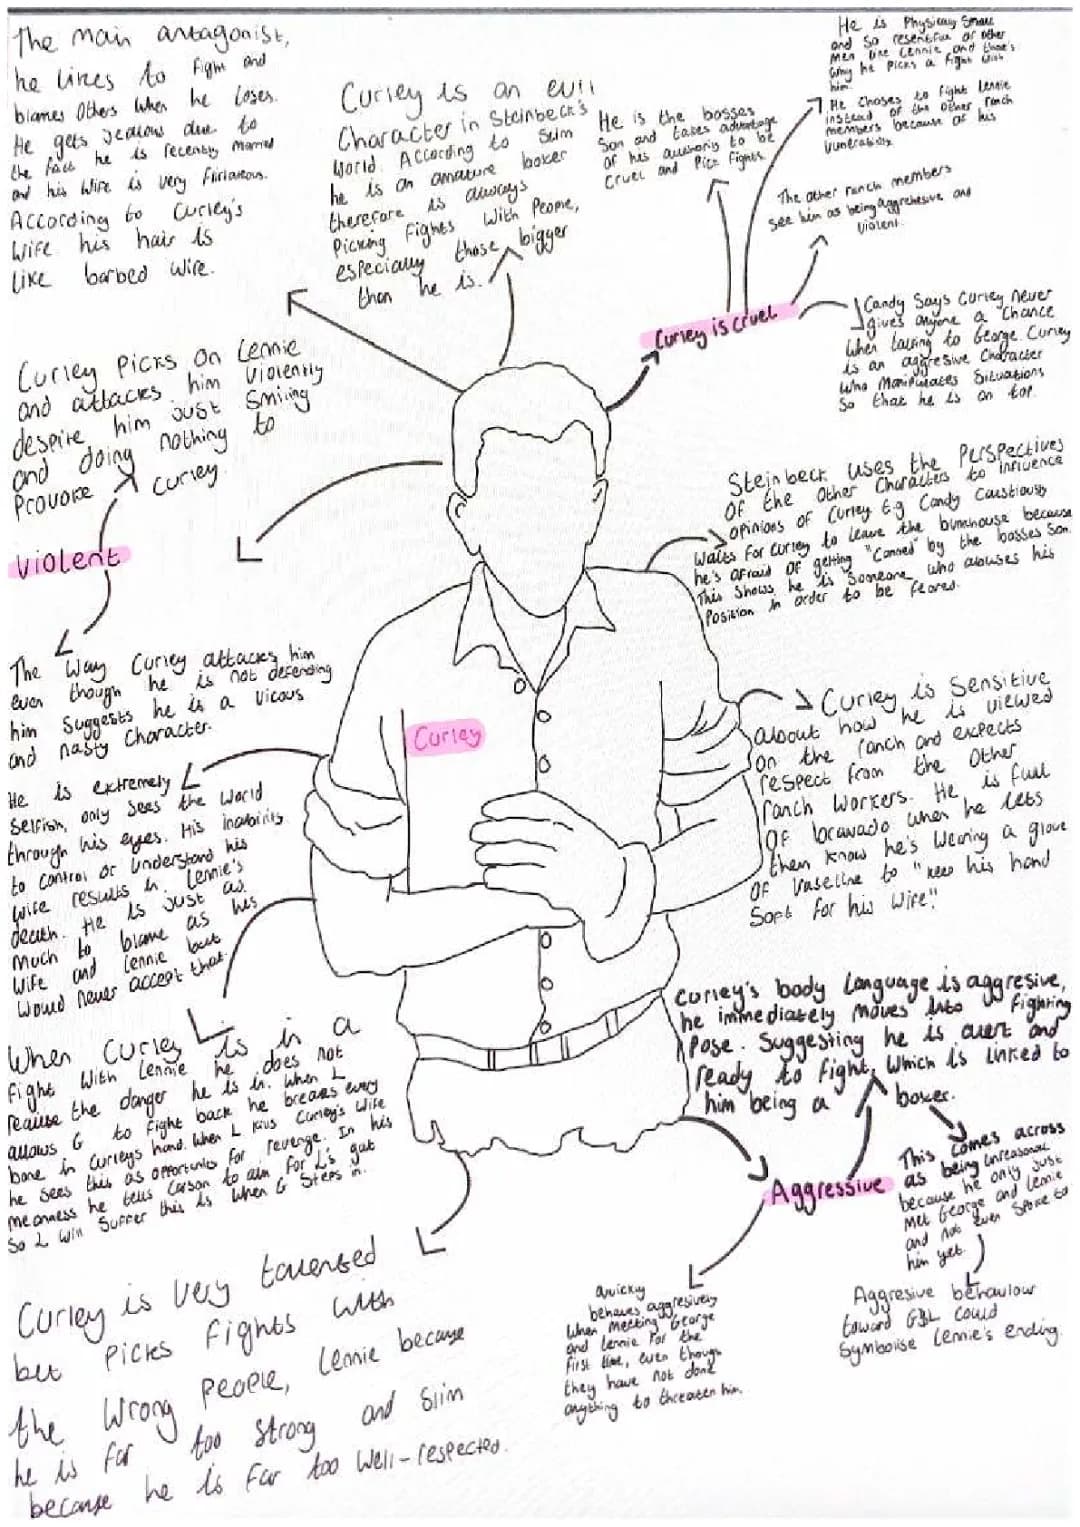 The main antagonist,
he likes to fight and
blames others when he loses.
He gets jealous due to
the fact he is recently married
and his wife is very flirtatious.
According to Curley's
wife his hair is
like barbed wire.
Curley is an evil
Character in Steinbeck's
World. According to Slim
he is an amature boxer
therefore is always
Picking fights with People,
especially those bigger
than he is.
He is the bosses
Son and takes advantage
of his authority to be
cruel and Pick fights.
He is Physically Small
and so resentful of other
men like Lennie and that's
why he picks a fight with
him.
He choses to fight Lennie
instead of the other ranch
members because of his
vunerability.
The other ranch members
see him as being aggresive and
violent.
Curley is cruel
Candy Says Curley never
gives anyone a chance
when talking to George. Curley
is an aggresive Character
who Manipulates Situations
So that he is on top.
Curley Picks on Lennie
and attacks him violently
despite him just smiling
and doing nothing to
Provoke Curley.
Violent
The way Curley attacks him
even though he is not defending
him suggests he is a vicous
and nasty character.
Steinbeck uses the Perspectives
of the other Characters to influence
opinions of Curley E.g Candy Caustiously
Waits for Curley to leave the bunkhouse because
he's afraid of getting "Canned" by the bosses son.
This shows he is someone who abuses his
Position in order to be feared.
Curley
Curley is Sensitive
about how he is viewed
on the ranch and expects
respect from the Other
ranch workers. He is full
of bravado when he lets
them know he's wearing a glove
of vaseline to "keep his hand
soft for his wife".
He is extremely
selfish, only sees the world
through his eyes. His inability
to control or understand his
wife results in Lennie's
death. He is just as
much to blame as his
wife and Lennie but
would never accept that.
When Curley is in a
fight with Lennie he does not
realise the danger he is in. When L
allows G to fight back he breaks every
bone in Curleys hand. When L kills Curley's wife
he sees this as opportunity for revenge. In his
meanness he tells Carson to aim for L's gut
So L will suffer this is when G steps in.
Curley's body language is aggresive,
he immediately moves into fighting
Pose. Suggesting he is alert and
ready to fight, which is linked to
him being a boxer.
Aggressive
This comes across
as being unreasonal
because he only just
met George and Lennie
and not even spoke to
him yet.
Aggresive behaviour
toward G&L could
symbolise Lennie's ending.
Quickly
behaves aggresively
when meeting George
and Lennie for the
first time, even though
they have not done
anything to threaten him.
Curley is very talented
but picks fights with
the wrong people, Lennie because
he is far too strong and Slim
because he is far too well-respected.